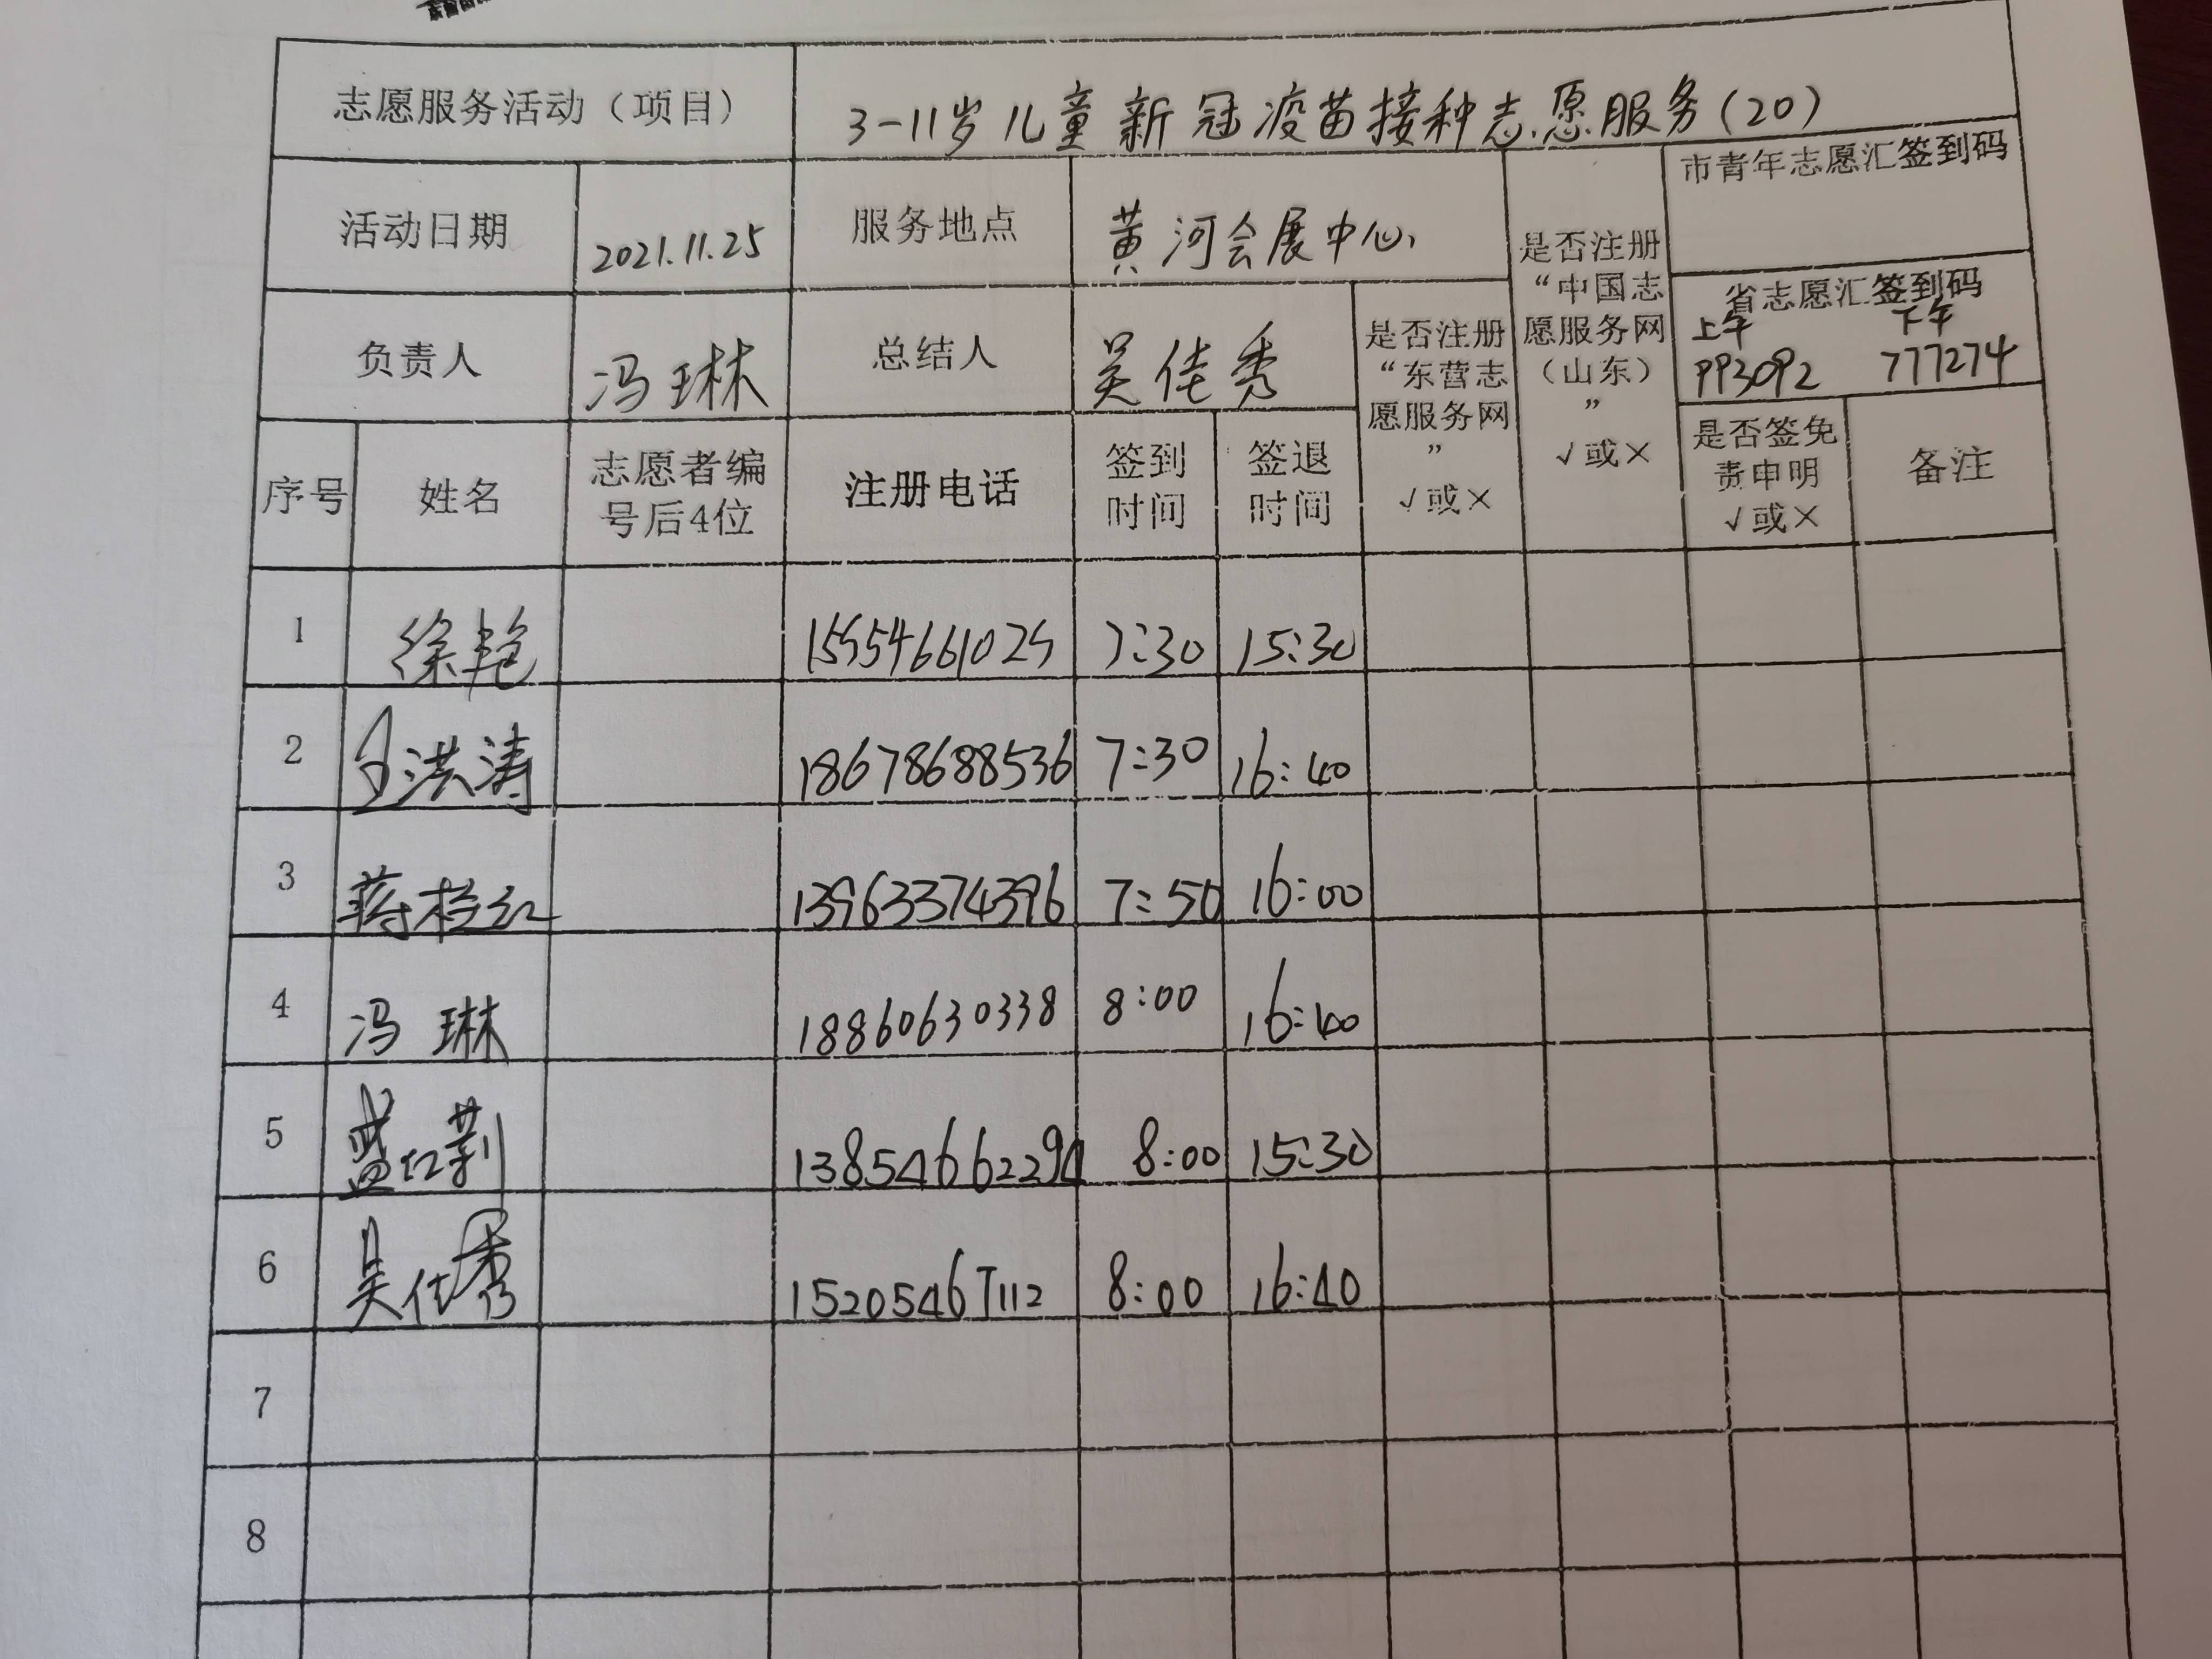 志愿服务活动（项目） 3-11岁儿童新冠疫苗接种志愿服务(20)
活动日期 2021.11.25 服务地点 黄河会展中心
负责人 冯琳 总结人 吴佳秀
是否注册“东营志愿服务网” √或×
是否注册“中国志愿服务网（山东）” √或×
市青年志愿汇签到码
省志愿汇签到码
上午 下午
PP3092 777274
序号 姓名 志愿者编号后4位 注册电话 签到时间 签退时间 是否签免责申明 √或× 备注
1 徐艳 15954661025 7:30 15:30
2 洪涛 18678688536 7:30 16:40
3 蒋 红 13963374396 7:50 16:00
4 冯琳 18860630338 8:00 16:40
5 盛红莉 13854662294 8:00 15:30
6 吴佳秀 15205467112 8:00 16:40
7
8